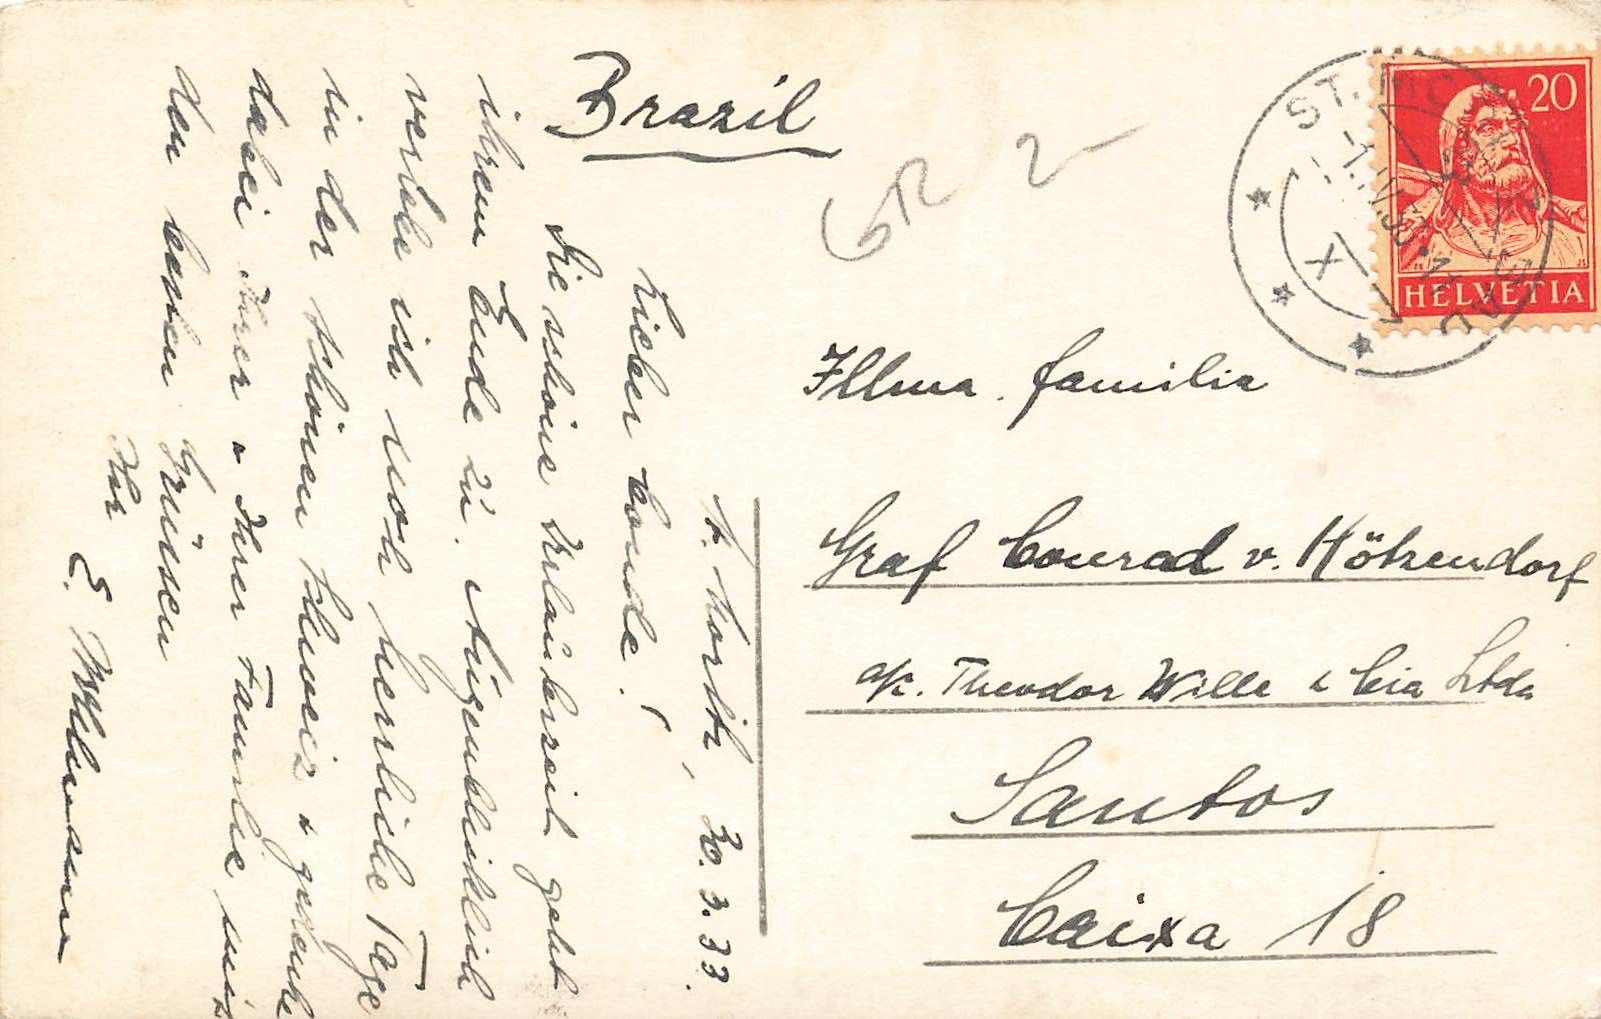 Brazil
GR 2-
20
HELVETIA
ST. MORITZ
BAD
X
Illma. familia
Graf Conrad v. Hötzendorf
a/c. Theodor Wille & Cia Ltda
Santos
Caixa 18
St. Moritz, 30.3.33.
Lieber Conde!
Die schöne Urlaubszeit geht
ihrem Ende zu. Augenblicklich
verlebe ich noch herrliche Tage
in der schönen Schweiz & gedenke
dabei Ihrer & Ihrer Familie mit
den besten Grüssen
Ihr